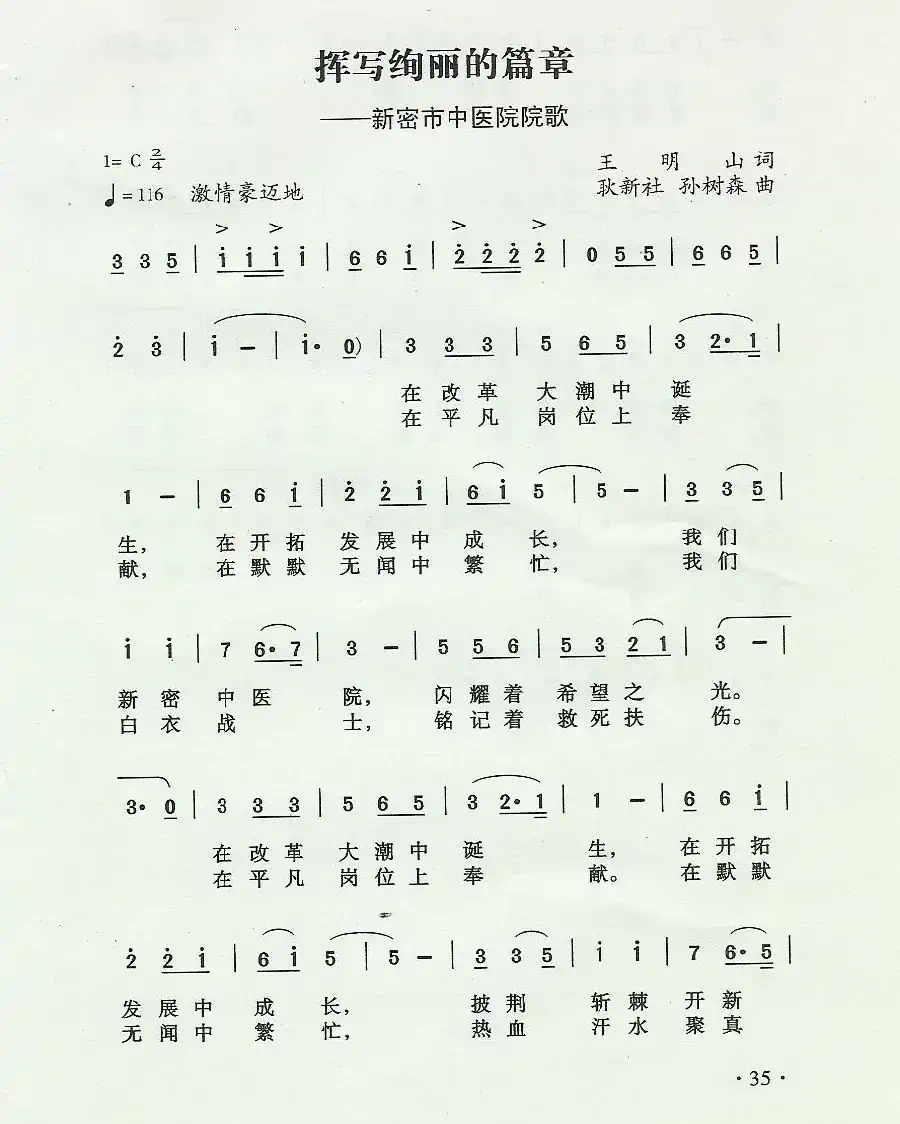 挥写绚丽的篇章
——新密市中医院院歌
1= C 2/4
王 明 山 词
♩=116 激情豪迈地
耿新社 孙树森 曲
> > > >
3 3 5 | i i i i | 6 6 i | 2̇ 2̇ 2̇ 2̇ | 0 5 5 | 6 6 5 |
2̇ 3̇ | i – | i· 0) | 3 3 3 | 5 6 5 | 3 2· 1 |
在 改 革 大 潮 中 诞
在 平 凡 岗 位 上 奉
1 – | 6 6 i | 2̇ 2̇ i | 6 i 5 | 5 – | 3 3 5 |
生, 在 开 拓 发 展 中 成 长, 我 们
献, 在 默 默 无 闻 中 繁 忙, 我 们
i i | 7 6· 7 | 3 – | 5 5 6 | 5 3 2 1 | 3 – |
新 密 中 医 院, 闪 耀 着 希 望 之 光。
白 衣 战 士, 铭 记 着 救 死 扶 伤。
3· 0 | 3 3 3 | 5 6 5 | 3 2· 1 | 1 – | 6 6 i |
在 改 革 大 潮 中 诞 生, 在 开 拓
在 平 凡 岗 位 上 奉 献。 在 默 默
2̇ 2̇ i | 6 i 5 | 5 – | 3 3 5 | i i | 7 6· 5 |
发 展 中 成 长, 披 荆 斩 棘 开 新
无 闻 中 繁 忙, 热 血 汗 水 聚 真
· 35 ·